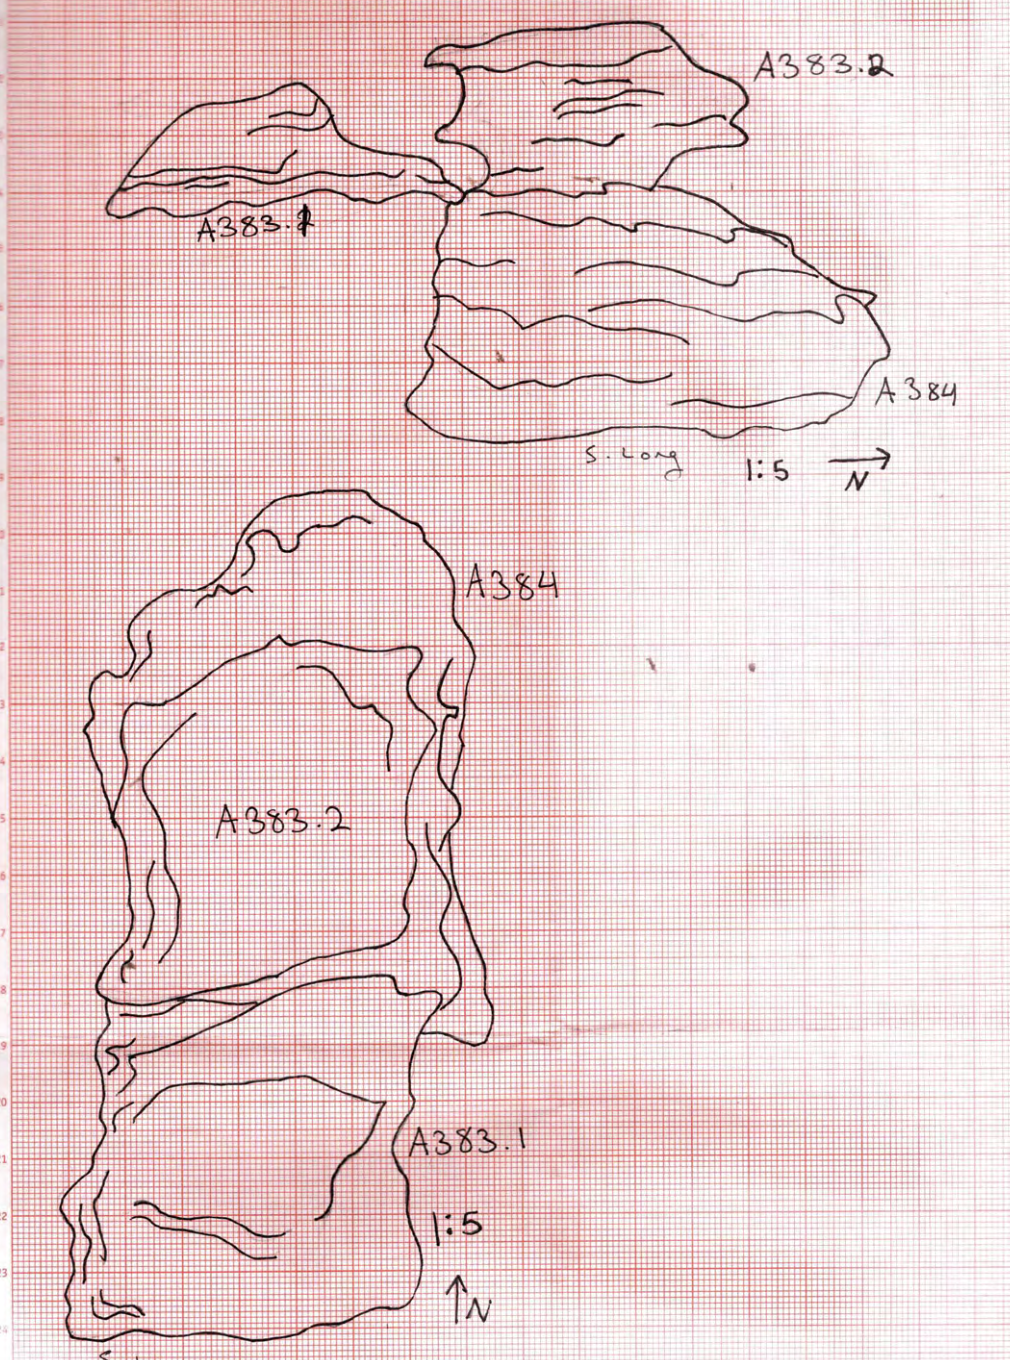 A383.2
A383.1
A384
S. Long 1:5 N
A384
A383.2
A383.1
1:5
N